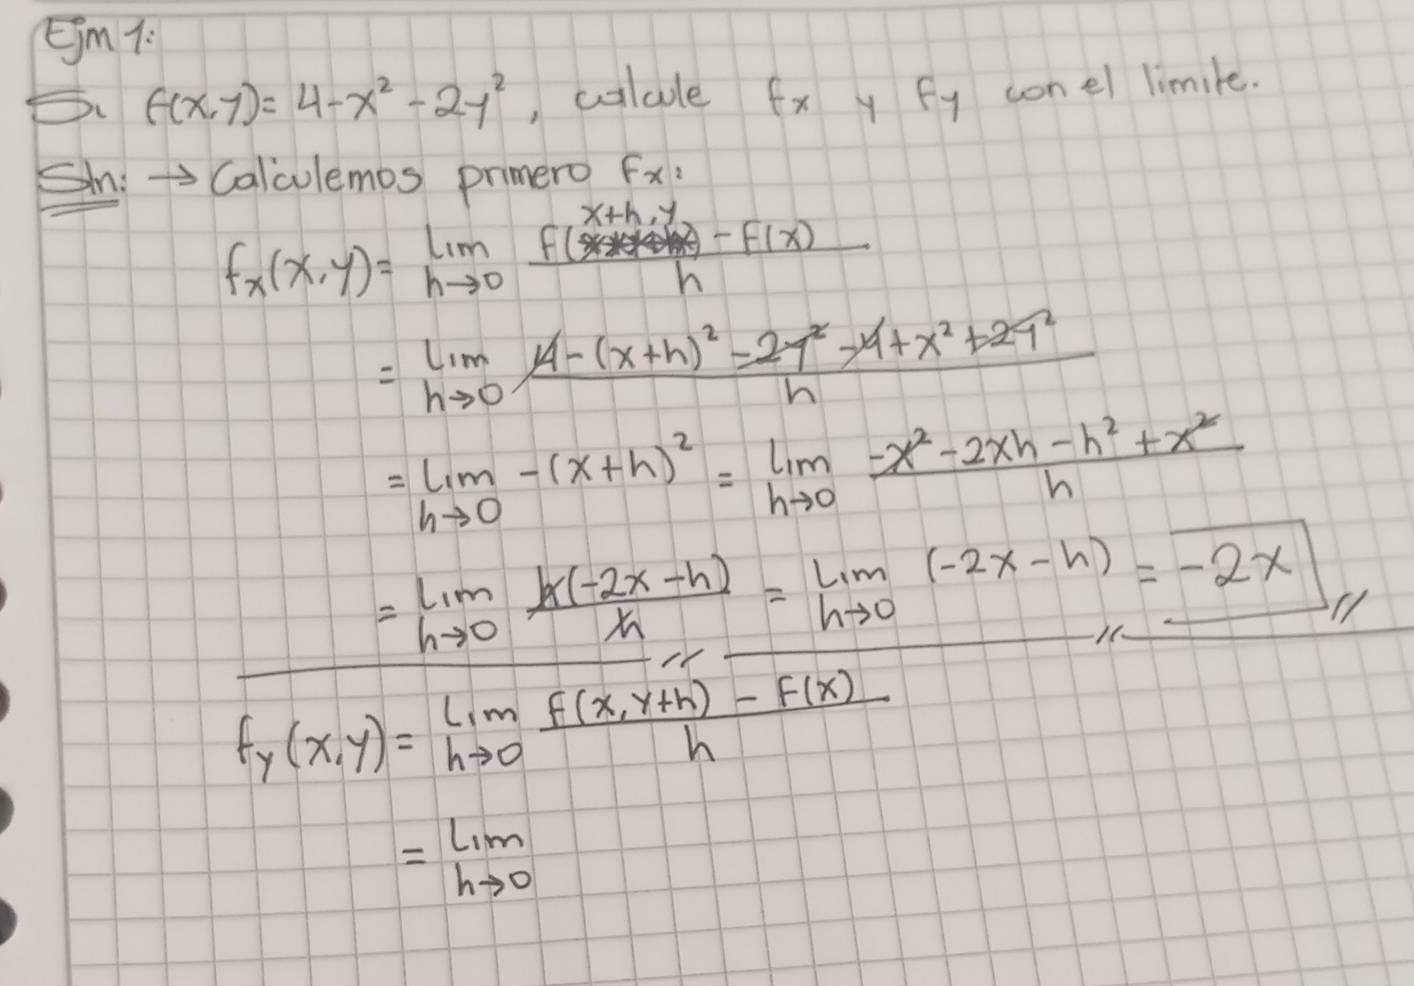 Ejm 1:
Si f(x,y) = 4-x² -2y², calcule fx y fy con el limite.
Sln: → Calculemos primero fx:
fx(x,y) = lim h→0 f(x+h,y) - f(x) / h
= lim h→0 4-(x+h)² -2y² -4+x² +2y² / h
= lim h→0 -(x+h)² = lim h→0 -x² -2xh -h² +x² / h
= lim h→0 h(-2x-h) / h = lim h→0 (-2x-h) = -2x //
fy(x,y) = lim h→0 f(x,y+h) - f(x) / h
= lim h→0